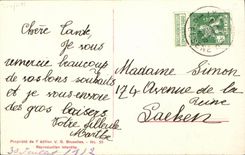 Chère Tante,
Je vous
remercie beaucoup
de vos bons souhaits
et je vous envoie
des gros baisers
Votre filleule
Madame Simon
174 Avenue de la
Reine
Laeken
Propriété de l'édition V. G. Bruxelles. - No. 
Reproduction interdite.
1912